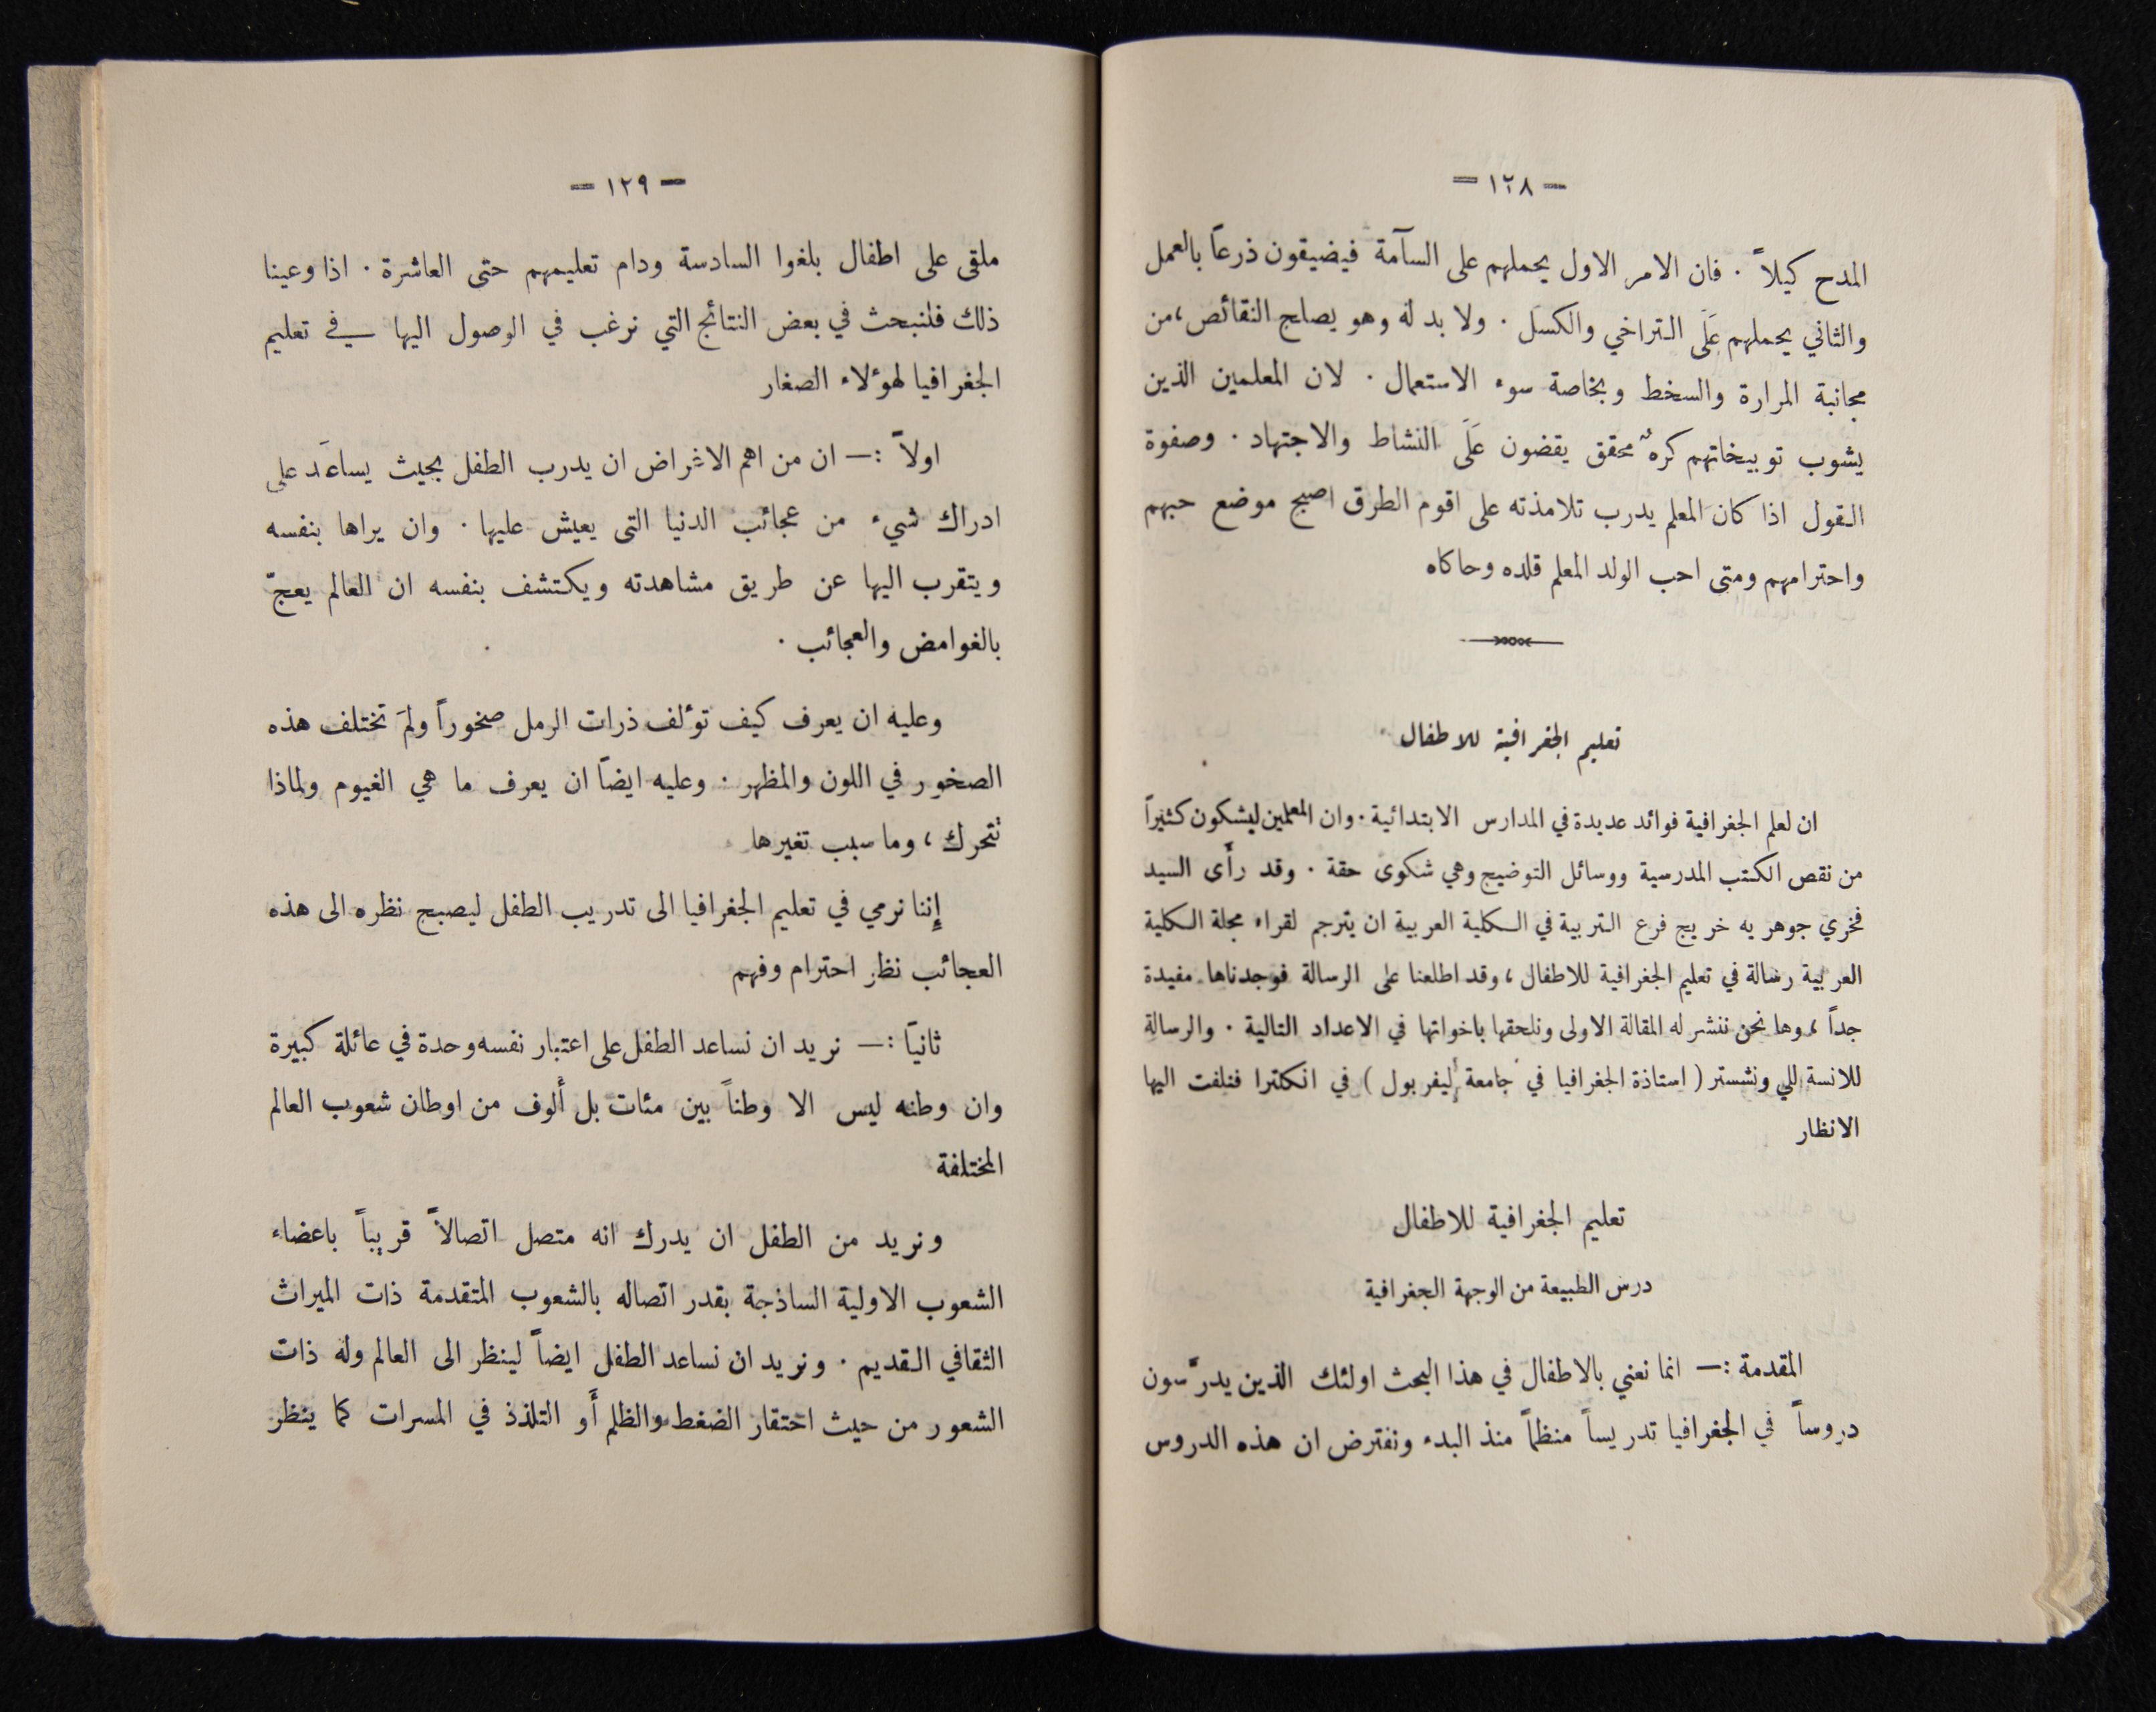 – ١٢٨ –
المدح كيلاً . فان الامر الاول يحملهم على السآمة فيضيقون ذرعاً بالعمل
والثاني يحملهم عَلَى التراخي والكسل . ولا بد له وهو يصلح النقائص ، من
مجانبة المرارة والسخط وبخاصة سوء الاستعمال . لان المعلمين الذين
يشوب توبيخاتهم كرهٌ محقق يقضون عَلَى النشاط والاجتهاد . وصفوة
القول اذا كان المعلم يدرب تلامذته على اقوم الطرق اصبح موضع حبهم
واحترامهم ومتى احب الولد المعلم قلده وحاكاه
تعليم الجغرافية للاطفال
ان لعلم الجغرافية فوائد عديدة في المدارس الابتدائية . وان المعلمين ليشكون كثيراً
من نقص الكتب المدرسية ووسائل التوضيح وهي شكوى حقة . وقد رأى السيد
فخري جوهريه خريج فرع التربية في الكلية العربية ان يترجم لقراء مجلة الكلية
العربية رسالة في تعليم الجغرافية للاطفال ، وقد اطلعنا على الرسالة فوجدناها مفيدة
جداً ، وها نحن ننشر له المقالة الاولى ونلحقها باخواتها في الاعداد التالية . والرسالة
للانسة للي ونشستر ( استاذة الجغرافيا في جامعة ليفربول ) في انكلترا فنلفت اليها
الانظار
تعليم الجغرافية للاطفال
درس الطبيعة من الوجهة الجغرافية
المقدمة :— انما نعني بالاطفال في هذا البحث اولئك الذين يدرَّسون
دروساً في الجغرافيا تدريساً منظماً منذ البدء ونفترض ان هذه الدروس
– ١٢٩ –
ملقى على اطفال بلغوا السادسة ودام تعليمهم حتى العاشرة . اذا وعينا
ذلك فلنبحث في بعض النتائج التي نرغب في الوصول اليها في تعليم
الجغرافيا لهؤلاء الصغار
اولاً :— ان من اهم الاغراض ان يدرب الطفل بحيث يساعَد على
ادراك شيء من عجائب الدنيا التى يعيش عليها . وان يراها بنفسه
ويتقرب اليها عن طريق مشاهدته ويكتشف بنفسه ان العالم يعجّ
بالغوامض والعجائب .
وعليه ان يعرف كيف تؤلف ذرات الرمل صخوراً ولمَ تختلف هذه
الصخور في اللون والمظهر . وعليه ايضاً ان يعرف ما هي الغيوم ولماذا
تتحرك ، وما سبب تغيرها
إننا نرمي في تعليم الجغرافيا الى تدريب الطفل ليصبح نظره الى هذه
العجائب نظر احترام وفهم
ثانياً :— نريد ان نساعد الطفل على اعتبار نفسه وحدة في عائلة كبيرة
وان وطنه ليس الا وطناً بين مئات بل أُلوف من اوطان شعوب العالم
المختلفة
ونريد من الطفل ان يدرك انه متصل اتصالاً قريباً باعضاء
الشعوب الاولية الساذجة بقدر اتصاله بالشعوب المتقدمة ذات الميراث
الثقافي القديم . ونريد ان نساعد الطفل ايضاً لينظر الى العالم وله ذات
الشعور من حيث احتقار الضغط والظلم أَو التلذذ في المسرات كما ينظر